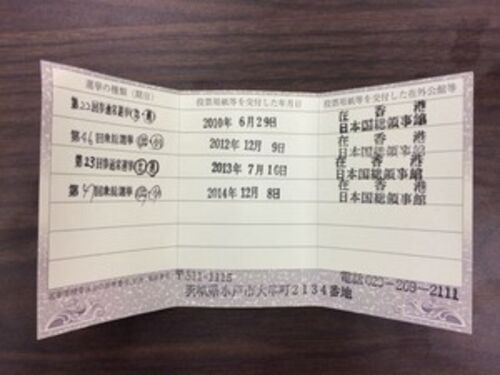 選挙の種類(期日) 投票用紙等を交付した年月日 投票用紙等を交付した在外公館等
第22回参通常選挙 2010年 6月29日 在香港日本国総領事館
第46回衆総選挙 2012年12月 9日 在香港日本国総領事館
第23回参通常選挙 2013年 7月10日 在香港日本国総領事館
第47回衆総選挙 2014年12月 8日 在香港日本国総領事館
〒311-1115
茨城県水戸市大串町2134番地
電話029-269-2111